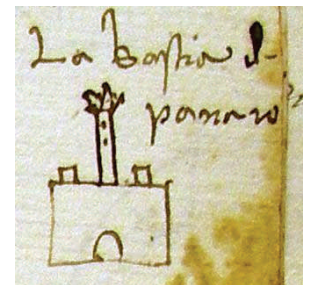 La bastia d
panaro